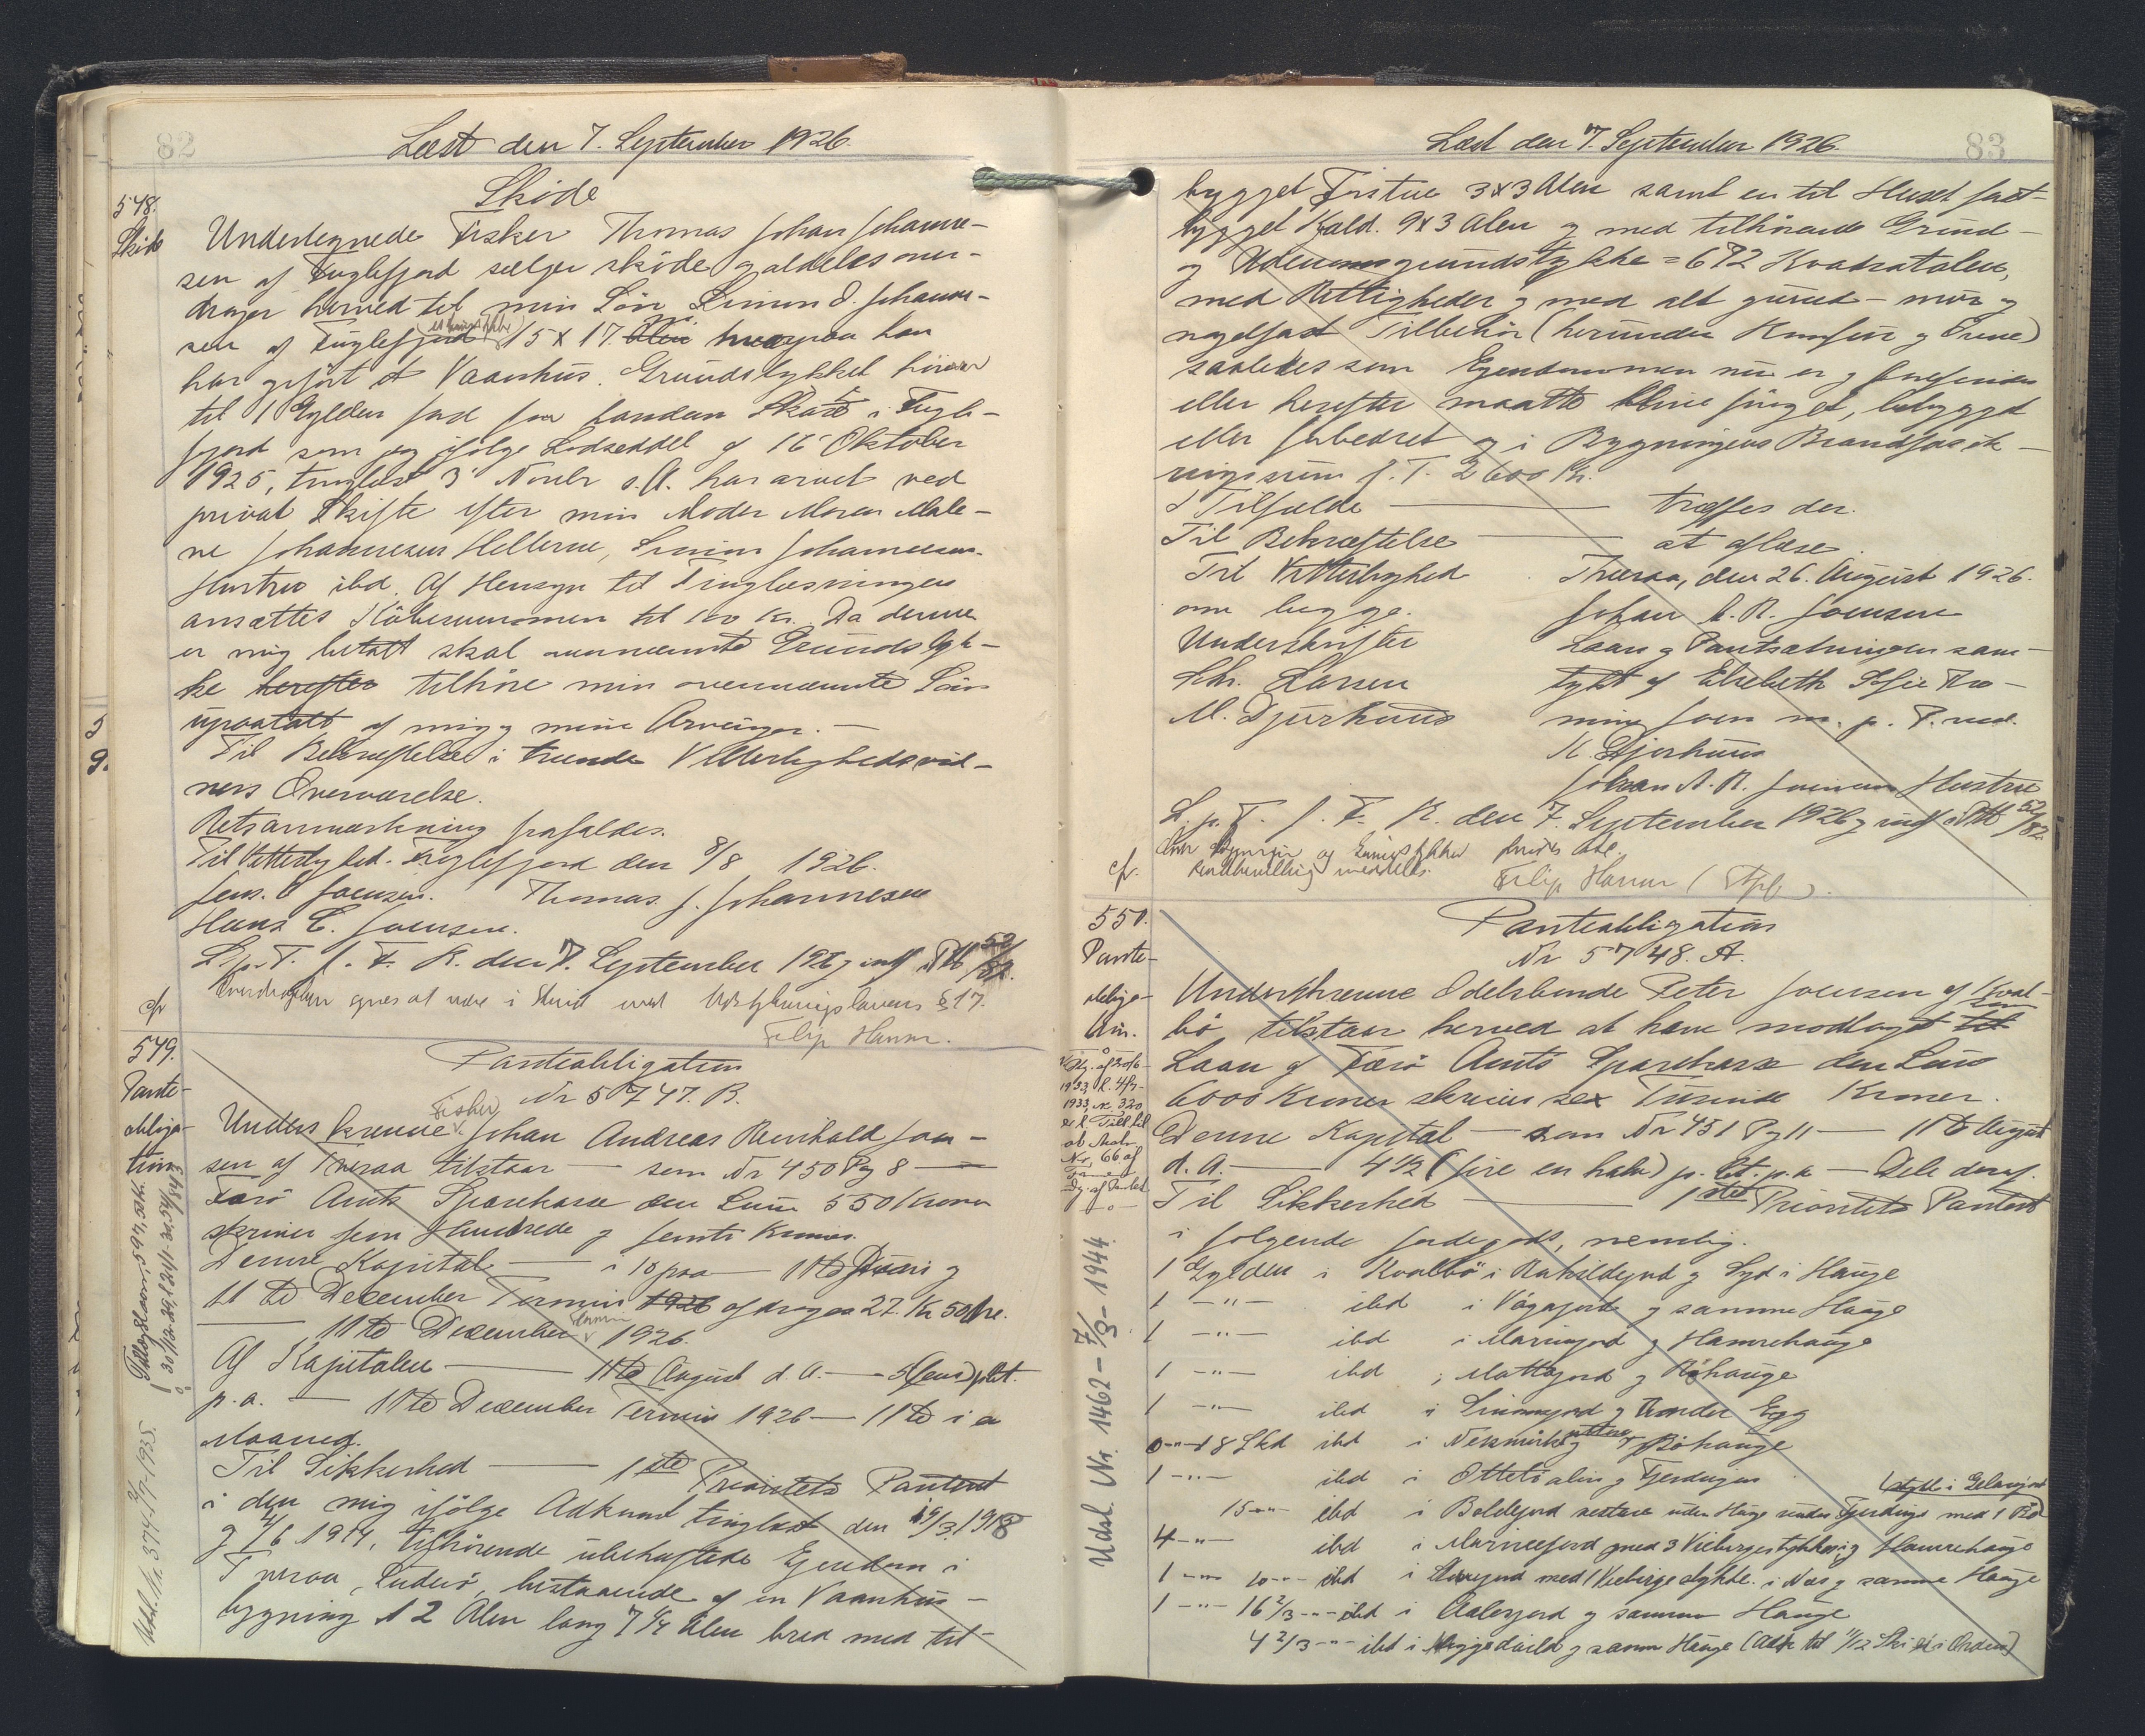 82
Læst den 7. September 1926.
548.
Skøde
Skøde
Undertegnede Fisker Thomas Johan Johanne-
sen af Fuglefjord sælger skøde og aldeles over-
drager herved til min Søn Simun J. Johanne-
sen af Fuglefjord 15 x 17 Alen hvorpaa han
har opført et Vaanhus. Grundstykket hører
til 1 Gylden Jord fra Jorden i Fugle-
fjord som jeg ifølge Lodseddel af 16 Oktober
1925, tinglæst 3 Novbr s. A. har arvet ved
privat Skifte efter min Moder Maren Male-
ne Johannesen Hellerne, Simun Johannesens
Hustru ibd. Af Hensyn til Tinglæsningen
ansættes Købesummen til 100 Kr. Da denne
er mig betalt skal ovennævnte Grundstyk-
ke herefter tilhøre min ovennævnte Søn
upaatalt af mig og mine Arvinger.
Til Bekræftelse i tvende Vitterlighedsvid-
ners Overværelse.
Retsanmærkning frafaldes.
Til Vitterlighed. Fuglefjord den 8/8 1926.
Jens. J. Joensen. Thomas J. Johannesen
Hans C. Joensen.
L. p. T. f. F. R. den 7. September 1926 og indf i Ptb 52/82.
Overdragelsen synes at være i Strid med Udstykningslovens § 17.
cfr
Filip Hamm.
549.
Pante-
obliga-
tion
Panteobligation
Nr 5747. B.
Underskrevne Fisker Johan Andreas Reinhold Joen-
sen af Tveraa tilstaar — som Nr 450 Pg 8 —
Færø Amts Sparekasse den Sum 550 Kroner
skriver fem Hundrede og femti Kroner.
Denne Kapital — i 10 paa — 11te Juni og
11te December Termin 1926 afdrages 27 Kr 50 Øre.
— 11te December Termin 1926.
Af Kapitalen — 11te August d. A. — 5 (fem) pCt.
p. a. — 11te December Termin 1926 — 11te i a
Maaned.
Til Sikkerhed — 1ste Prioritets Panteret
i den mig ifølge Adkomst tinglæst den 19/3 1918
og 4/6 1914, tilhørende ubehæftede Ejendom i
Tveraa, Suderø, bestaaende af en Vaanhus-
bygning 12 Alen lang 7 1/4 Alen bred med til-
Udsl. Nr. 374-5/7-1935.
83
Læst den 7. September 1926.
bygget Forstue 3x3 Alen samt en til Huset fast-
bygget Kjald. 9x3 Alen og med tilhørende Grund-
og Udenomsgrundstykke = 672 Kvadratalen,
med Rettigheder og med alt grund- mur og
nagelfast Tilbehør (herunder Komfur og Ovne)
saaledes som Ejendommen nu er og forefindes
eller herefter maatte blive forøget, bebygget
eller forbedret og i Bygningens Brandforsik-
ringssum p. T. 2600 Kr.
I Tilfælde — træffes der.
Til Bekræftelse — at aflæse.
Til Vitterlighed Tveraa, den 26. August 1926.
om begge Johan A. R. Joensen
Underskrifter Laan og Pantsætningen sam-
Chr. Larsen tykt af Elsebeth Sofie Kro-
M. Djurhuus ning Joen m. p. P. ved.
K. Djurhuus
Johan A. R. Joensens Hustru
L. p. T. f. F. R. den 7. September 1926 og indf i Ptb 52/82.
cfr.
Filip Hamm
550.
Pante-
obliga-
tion.
Panteobligation
Nr 5748. A.
Underskrevne Odelsbonde Peter Joensen af Kval-
bø tilstaar herved at have modtaget til
Laan af Færø Amts Sparekasse den Sum
6000 Kroner skriver sex Tusinde Kroner.
Denne Kapital — som Nr 451 Pg 11 — 11te August
d. A. — 4 1/2 (fire en halv) p. Ct. p. a — Dele deraf.
Til Sikkerhed — 1ste Prioritets Panteret
i følgende Jordegods, nemlig.
1 Gylden i Kvalbø i Rahildejord og Syd i Hauge
1 —"— ibd i Vágajord og samme Hauge
1 —"— ibd i Marinjord og Hamrehauge
1 —"— ibd i Mattajord og Bøhauge
1 —"— ibd i Simunjord og Under Egg
0 —"— 18 Skd ibd i Bøhauge
1 —"— ibd i Ottetialin og Fjerdingen
15 —"— ibd i Boldejord
4 —"— ibd i Marinesjord med 3 og Hamrehauge
1 —"— 10 —"— ibd i med 1 i Nes og samme Hauge
1 —"— 16 2/3 —"— ibd i og samme Hauge
4 2/3 —"— ibd i og samme Hauge
Udsl. Nr. 1462 - 7/3 - 1944.